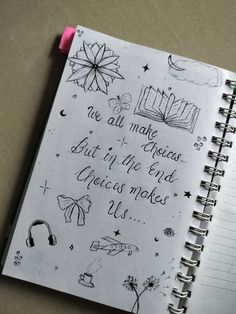 We all make
Choices...
But in the End
Choices makes
Us....